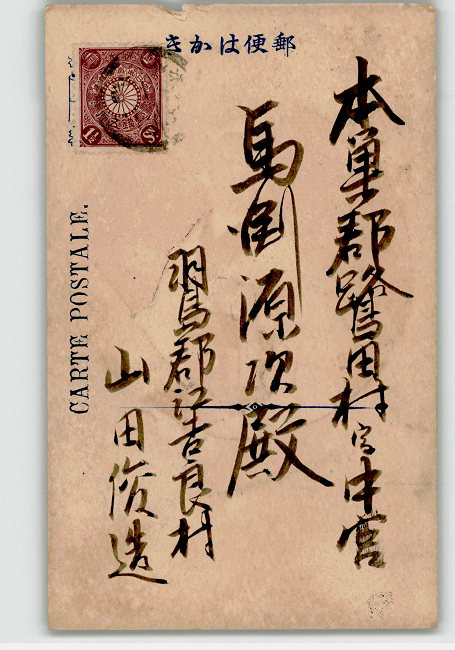 郵便はかき
本巣郡鷺田村字中宮
馬渕源次殿
羽島郡江吉良村
山田俊造
CARTE POSTALE.